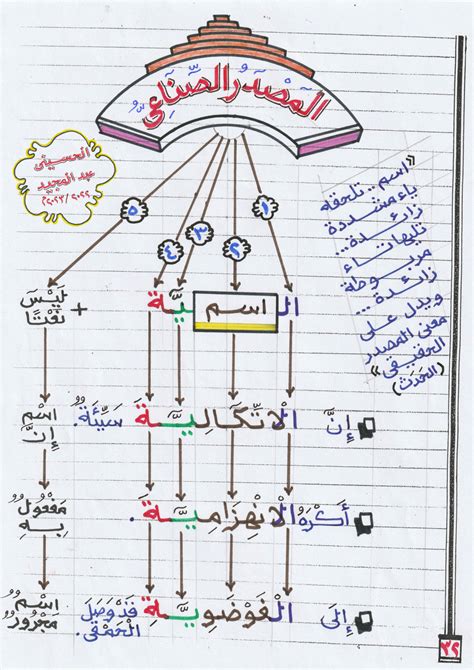 المَصْدَرُ الصِّنَاعِيُّ
الحسيني
عبد المجيد
٢٠٢٢/٢٠٢٣م
«اسم.. تلحقه
ياء مشددة
زائدة...
تليها تاء
مربوطة
زائدة...
ويدل على
معنى المصدر
الحقيقي»
(الحَدَث)
١
٢
٣
٤
٥
الـ اسم يَّة + لَيْسَ نَعْتًا
إِنَّ الْاِتِّكَالِيَّةَ سَيِّئَةٌ. اسْم إِنَّ
أَكْرَهُ الْاِنْهِزَامِيَّةَ. مَفْعُولٌ بِهِ
إِلَى الْفَوْضَوِيَّةِ قَدْ وَصَلَ الْحَمْقَى. اسْمٌ مَجْرُورٌ
٣٢